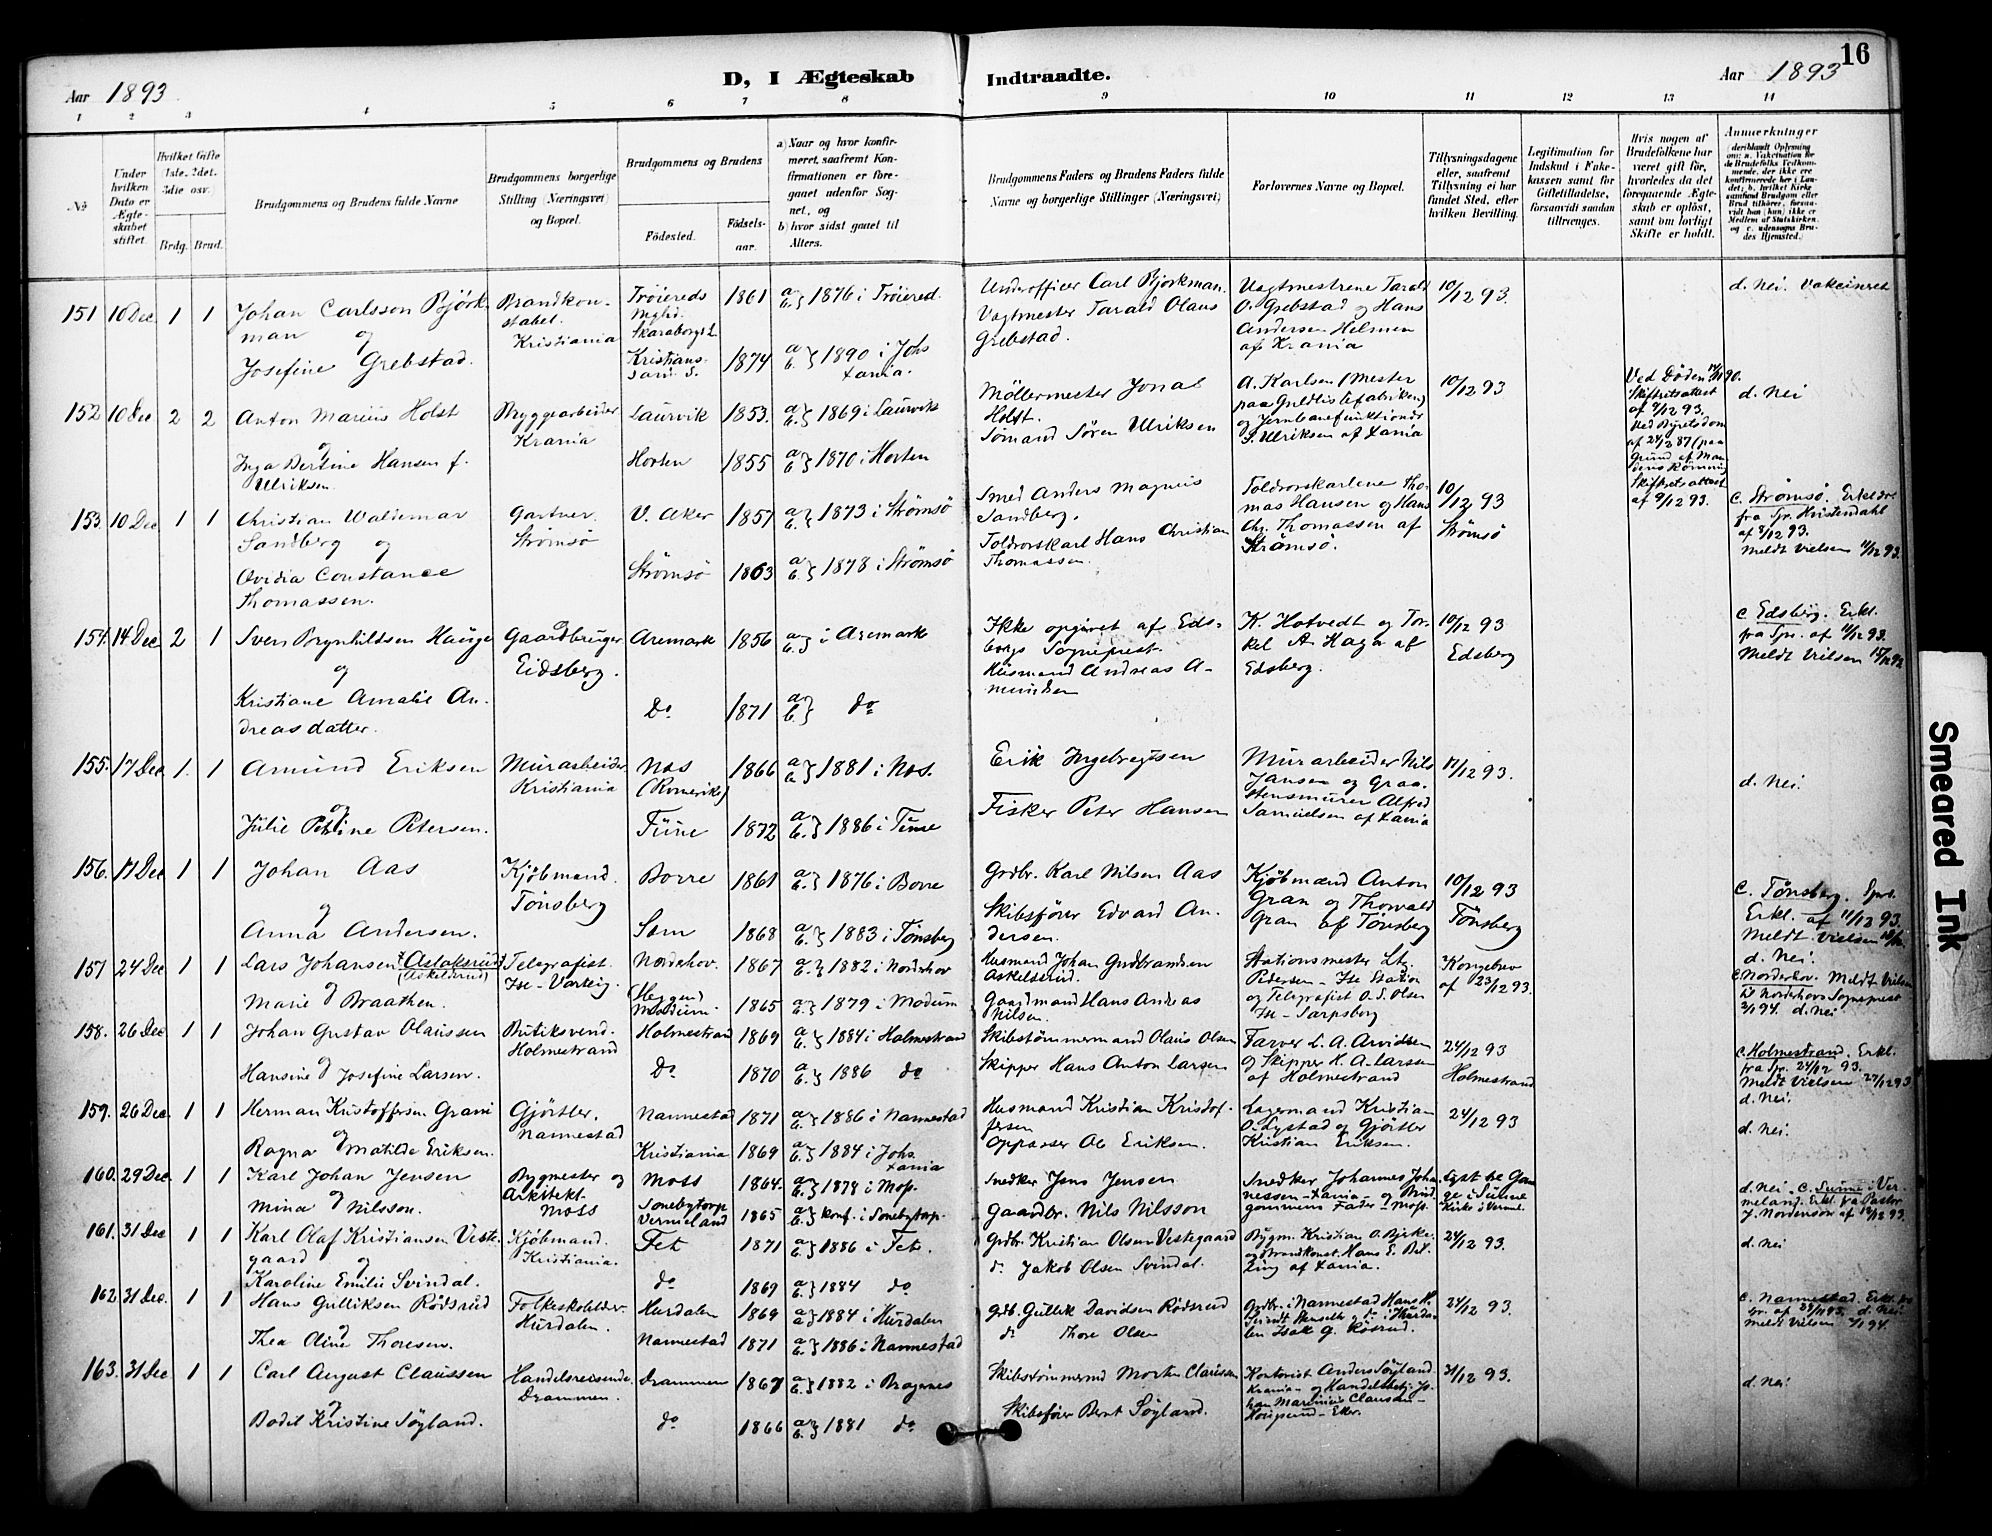 16
D, I Ægteskab Indtraadte.
Aar 1893
Aar 1893
1 2 3 4 5 6 7 8 9 10 11 12 13 14
No
Under hvilken Dato er Ægteskabet stiftet.
Hvilket Gifte (1ste, 2det, 3die osv.)
Brdg. Brud.
Brudgommens og Brudens fulde Navne
Brudgommens borgerlige Stilling (Næringsvei) og Bopæl.
Brudgommens og Brudens
Fødested.
Fødselsaar.
a) Naar og hvor konfirmeret, saafremt Konfirmationen er foregaaet udenfor Sognet, og
b) hvor sidst gaaet til Alters.
Brudgommens Faders og Brudens Faders fulde Navne og borgerlige Stillinger (Næringsvei)
Forlovernes Navne og Bopæl.
Tillysningsdagene eller, saafremt Tillysning ei har fundet Sted, efter hvilken Bevilling.
Legitimation for Indskud i Fakekassen samt for Giftetilladelse, forsaavidt saadan tiltrænges.
Hvis nogen af Brudefolkene har været gift før, hvorledes da det foregaaende Ægteskab er opløst, samt om lovligt Skifte er holdt.
Anmerkninger
151 10 Dec 1 1 Johan Carlsson Björkman og Brandkonstabel. Kristiania Tröiereds Skaraborgs L. 1861 a b } 1876 i Tröiered. Underofficer Carl Bjorkman. Vagtmestrene Tarald O. Grebstad og Hans Andersen Helmen af Xrania 10/12 93. d. Nei. Vakcineret
Josefine Grebstad. Kristianssand S. 1874 a b } 1890 i Johs Xania. Vagtmester Tarald Olaus Grebstad.
152 10 Dec 2 2 Anton Marius Holst og Bryggearbeider Krania Laurvik 1853. a b } 1869 i Laurvik Möllermester Jonas Holst. A. Karlsen (Mester paa Guldlistefabriken) og Jernbanefunktionær S. Ulriksen af Xania 10/12 93 Ved Döden Skifteretsattest af 9/12 93. Ved Byretsdom af 24/2 87 (paa Grund af Mandens Römning Skifteretsattest af 9/12 93. d. Nei
Inga Bertine Hansen f. Ulriksen. Horten 1855 a b } 1870 i Horten Sömand Sören Ulriksen
153. 10 Dec 1 1 Christian Waldemar Sandberg og Gartner. Strömsö V. Aker 1857 a b } 1873 i Strömsö Smed Anders Magnus Sandberg. Toldrorskarlene Thomas Hansen og Hans Chr. Thomassen af Strömsö. 10/12 93 Strömsö C. Strömsö. Erklær. fra Spr. Hvistendahl af 8/12 93. Meldt Vielsen 11/12 93.
Ovidia Constance Thomassen. Strömsö 1863 a b } 1878 i Strömsö Toldrorskarl Hans Christian Thomassen.
154. 14 Dec 2 1 Sven Brynhildsen Hauge og Gaardbruger Eidsberg. Aremark 1856 a b } i Aremark Ikke opgivet af Edsbergs Sogneprest. K. Hotvedt og Torkel A. Haga af Edsberg. 10/12 93 Edsberg C Edsberg. Erkl. fra Spr. af 11/12 93. Meldt Vielsen
Kristiane Amalie Andreasdatter. Do 1871 a b } do Husmand Andreas Amundsen
155. 17 Dec 1. 1 Amund Eriksen og Murarbeider Kristiania Næs (Romerike) 1866 a b } 1881 i Næs. Erik Ingebregtsen Murarbeider Nils Jansen og Graastensmurer Alfred Samuelsen af Xania 17/12 93. d. Nei.
Julie Petrine Petersen. Tune 1872 a b } 1886 i Tune Fisker Peter Hansen
156. 17 Dec 1 1 Johan Aas og Kjöbmand. Tönsberg Borre 1861 a b } 1876 i Borre Grdbr. Karl Nilsen Aas Kjöbmænd Anton Gran og Thorvald Gran af Tönsberg 10/12 93 Tönsberg C. Tönsberg. Sprs. Erkl. af 11/12 93. Meldt Vielsen d. Nei.
Anna Andersen. Sem 1868 a b } 1883 i Tönsberg Skibsförer Edvard Andersen.
157 24 Dec 1 1 Lars Johansen Aslaksrud (Askelsrud) og Telegrafist. Ise-Varteig. Norderhov. 1867 a b } 1882 i Norderhov Husmand Johan Gudbrandsen Askelsrud. Stationsmester Ltz. Pedersen - Ise Station og Telegrafist O. S. Olsen Ise - Sarpsborg Kongebrev af 23/12 93. C. Norderhov. Meldt Vielsen til Norderhovs Sogneprest 2/1 94. d. Nei
Marie Braathen. (Heggen) Modum. 1865 a b } 1879 i Modum Gaardmand Hans Andreas Nilsen.
158. 26 Dec 1 1 Johan Gustav Olaussen og Butiksvend. Holmestrand Holmestrand 1869 a b } 1884 i Holmestrand Skibstömmermand Olaus Olsen Farver L. A. Arvidsen og Skipper H. A. Larsen af Holmestrand 24/12 93 Holmestrand C. Holmestrand. Erkl. fra Spr. 24/12 93. Meldt Vielsen 27/12 93. d. Nei.
Hansine Josefine Larsen. Do 1870 a b } 1886 do Skipper Hans Anton Larsen
159. 26 Dec. 1 1 Herman Kristoffersen Grani og Gjörtler. Nannestad Nannestad 1871 a b } 1886 i Nannestad Husmand Kristian Kristoffersen Lagermand Kristian O. Lystad og Gjörtler Kristian Eriksen. 24/12 93 d. Nei.
Ragna Matilde Eriksen. Kristiania 1869 a b } 1884 i Johs Xania Oppasser Ole Eriksen.
160. 29 Dec 1 1 Karl Johan Jensen og Bygmester og Arkitekt. Moss Moss 1864. a b } 1878 i Moss. Snedker Jens Jensen Snedker Johannes Johannessen - Xania - og Brudgommens Fader - Moss. Lyst tre Gange i Sunne Kirke i Verml. d. Nei. C. Sunne i Vermeland. Erkl. fra Pastor J. Norenson af 12/12 93.
Mina Nilsson. Vermeland 1865 a b } konf. i Gaardbr. Nils Nilsson
161. 31 Dec 1 1 Karl Olaf Kristiansen Vestegaard og Kjöbmand. Kristiania. Fet 1871 a b } 1886 i Fet. Grdbr. Kristian Olsen Vestegaard Bygm. Kristian O. Bjerke og Brandkonst. Hans E. af Xania. 24/12 93. d. Nei
Karoline Emilie Svindal. do 1869 a b } 1884 do do Jakob Olsen Svindal.
162. 31 Dec. 1 1 Hans Gulliksen Rödsrud og Folkeskolelærer Hurdalen. Hurdalen 1869 a b } 1884 i Hurdalen Grdb. Gullik Davidsen Rödsrud Grdbr. i Nannestad Hans H. og do i Hurdalen Isak G. Rösrud. 24/12 93. C. Nannestad. Erkl. fra d. Nei. Meldt Vielsen
Thea Oline Thoresen. Nannestad 1871 a b } 1886 i Nannestad do Thore Olsen
163. 31 Dec 1 1 Carl August Claussen og Handelsreisende. Drammen. Drammen 1867 a b } 1882 i Bragernes Skibstömmermd Morten Claussen Kontorist Anders Söyland Krania - og Handelsbetj. Johan Marinius Clausen - Hougsund - Eker 31/12 93. d. Nei.
Bodil Kristine Söyland. do 1866 a b } 1881 do Skibsförer Bernt Söyland.
Smeared Ink